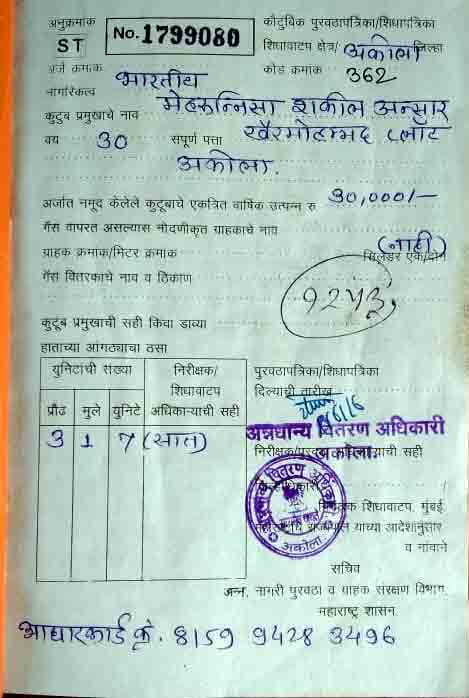 अनुक्रमांक
ST
No. 1799080
कौटुंबिक पुरवठापत्रिका/शिधापत्रिका
शिधावाटप क्षेत्र/ अकोला जिल्हा
अर्ज क्रमांक
कोड क्रमांक 362
नागरिकत्व भारतीय
कुटुंब प्रमुखाचे नाव मेहरुन्निसा शकील अन्सार
वय 30 संपूर्ण पत्ता खैरमोहम्मद प्लॉट
अकोला.
अर्जात नमूद केलेले कुटुंबाचे एकत्रित वार्षिक उत्पन्न रु 30,000/-
गॅस वापरत असल्यास नोंदणीकृत ग्राहकाचे नाव
(नाही)
ग्राहक क्रमांक/मिटर क्रमांक सिलेंडर एक/दोन
गॅस वितरकाचे नाव व ठिकाण
कुटुंब प्रमुखाची सही किंवा डाव्या
हाताच्या आंगठ्याचा ठसा
युनिटांची संख्या
निरीक्षक/
शिधावाटप
अधिकाऱ्याची सही
प्रौढ मुले युनिटे
3 1 7 (सात)
पुरवठापत्रिका/शिधापत्रिका
दिल्याची तारीख
अन्नधान्य वितरण अधिकारी
अकोला.
सही
शिधावाटप, मुंबई.
यांच्या आदेशानुसार
व नावाने
सचिव
अन्न, नागरी पुरवठा व ग्राहक संरक्षण विभाग,
महाराष्ट्र शासन.
आधारकार्ड क्रं. 8159 9428 3496